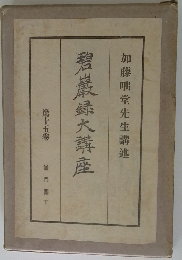 加藤咄堂先生講述
碧巖録大講座
第十五巻